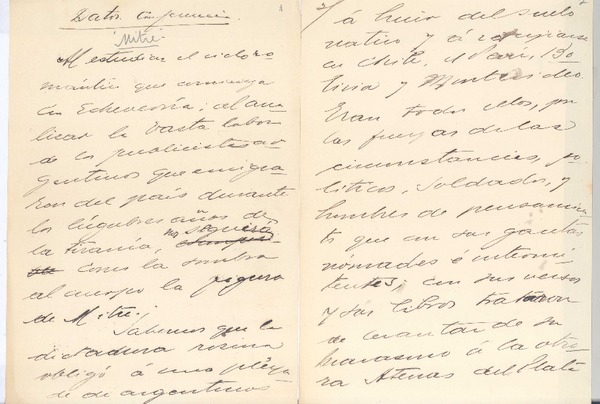 Datos. Conferencia.
Mitre.
Al estudiar el ciclo ro-
mántico que comienza
con Echeverría; al ana-
lizar la vasta labor
de los publicistas ar-
gentinos que emigra-
ron del país durante
los lúgubres años de
la tiranía, nos seguirá
como la sombra
al cuerpo la figura
de Mitre.
Sabemos que la
dictadura rosina
obligó á una pléya-
de de argentinos
2/ á huir del suelo
nativo y á refugiarse
en Chile, el Perú, Bo-
livia y Montevideo.
Eran todos ellos, por
las fuerzas de las
circunstancias, po-
líticos, soldados, y
hombres de pensamien-
to que con sus
nómades é intermi-
tentes; con sus versos
y sus libros trataron
de levantar de su
marasmo á la otro-
ra Atenas del Plata